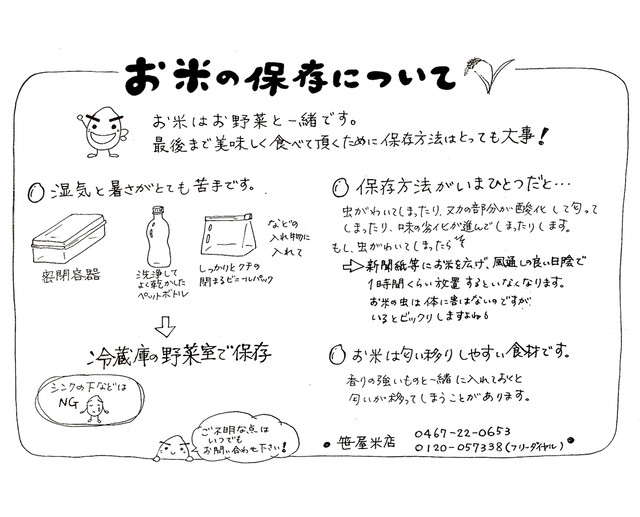 お米の保存について
お米はお野菜と一緒です。
最後まで美味しく食べて頂くために保存方法はとっても大事!
湿気と暑さがとても苦手です。
密閉容器
洗浄して
よく乾かした
ペットボトル
しっかりとクチの
閉まるビニールパック
などの
入れ物に
入れて
冷蔵庫の野菜室で保存
シンクの下などは
NG
ご不明な点は
いつでも
お問い合わせ下さい!
保存方法がいまひとつだと…
虫がわいてしまったり、ヌカの部分が酸化して匂って
しまったり、味の劣化が進んでしまったりします。
もし、虫がわいてしまったら
⇨新聞紙等にお米を広げ、風通しの良い日陰で
1時間くらい放置するといなくなります。
お米の虫は体に害はないのですが
いるとビックリしますよね。
お米は匂い移りしやすい食材です。
香りの強いものと一緒に入れておくと
匂いが移ってしまうことがあります。
・笹屋米店 0467-22-0653
0120-057338(フリーダイヤル)・